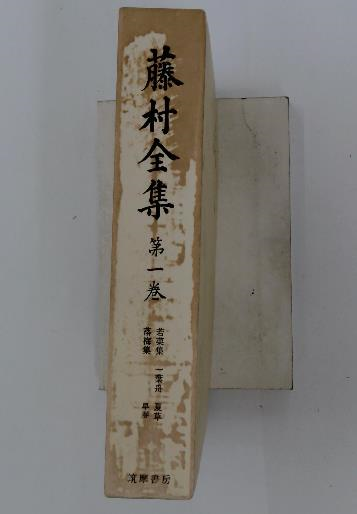 藤村全集
第一巻
若菜集 一葉舟 夏草
落梅集 早春
筑摩書房